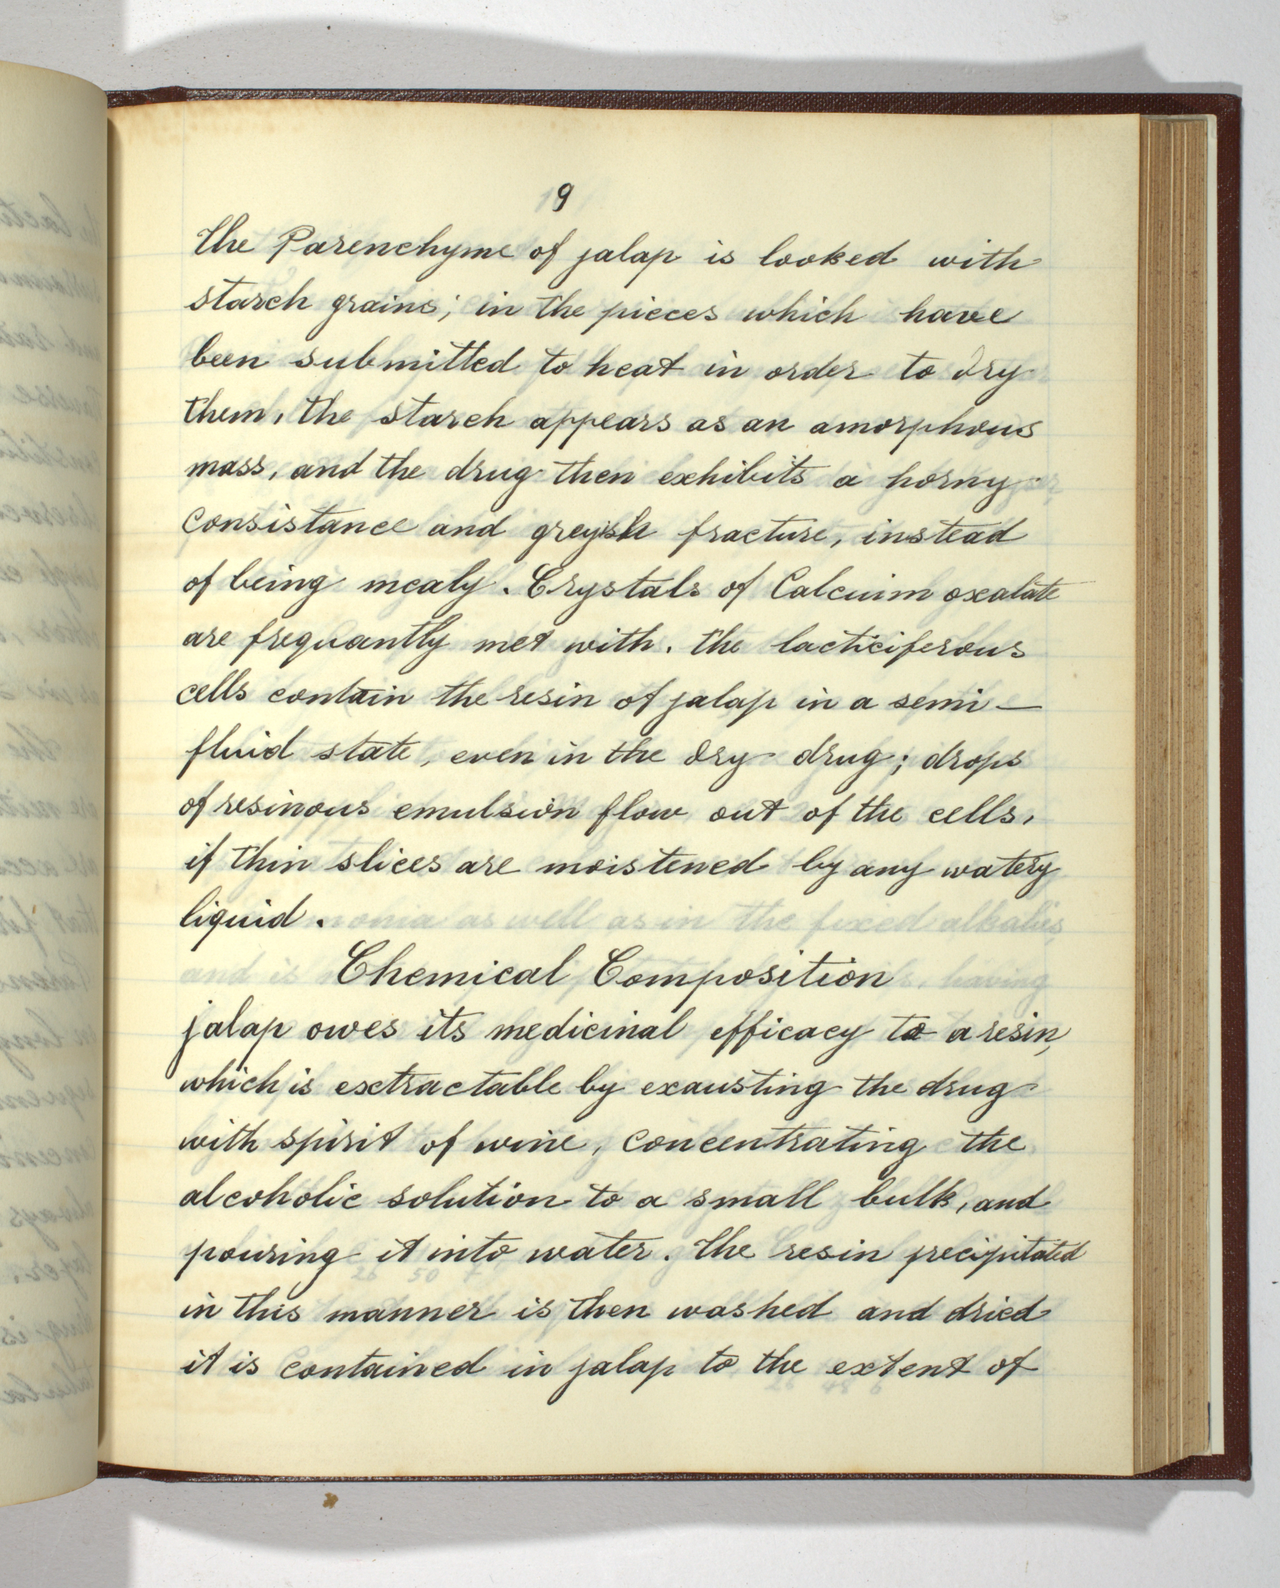 9
The Parenchyme of jalap is looked with
starch grains; in the pieces which have
been submitted to heat in order to dry
them, the starch appears as an amorphous
mass, and the drug then exhibits a horny
consistance and greyish fracture, instead
of being mealy. Crystals of Calcuim oxalate
are frequantly met with. the lacticiferous
cells contain the resin of jalap in a semi-
fluid state, even in the dry drug; drops
of resinous emulsion flow out of the cells,
if thin slices are moistened by any watery
liquid.
Chemical Composition
jalap owes its medicinal efficacy to a resin,
which is extractable by exausting the drug
with spirit of wine, concentrating the
alcoholic solution to a small bulk, and
pouring it into water. The resin precipitated
in this manner is then washed and dried
it is contained in jalap to the extent of